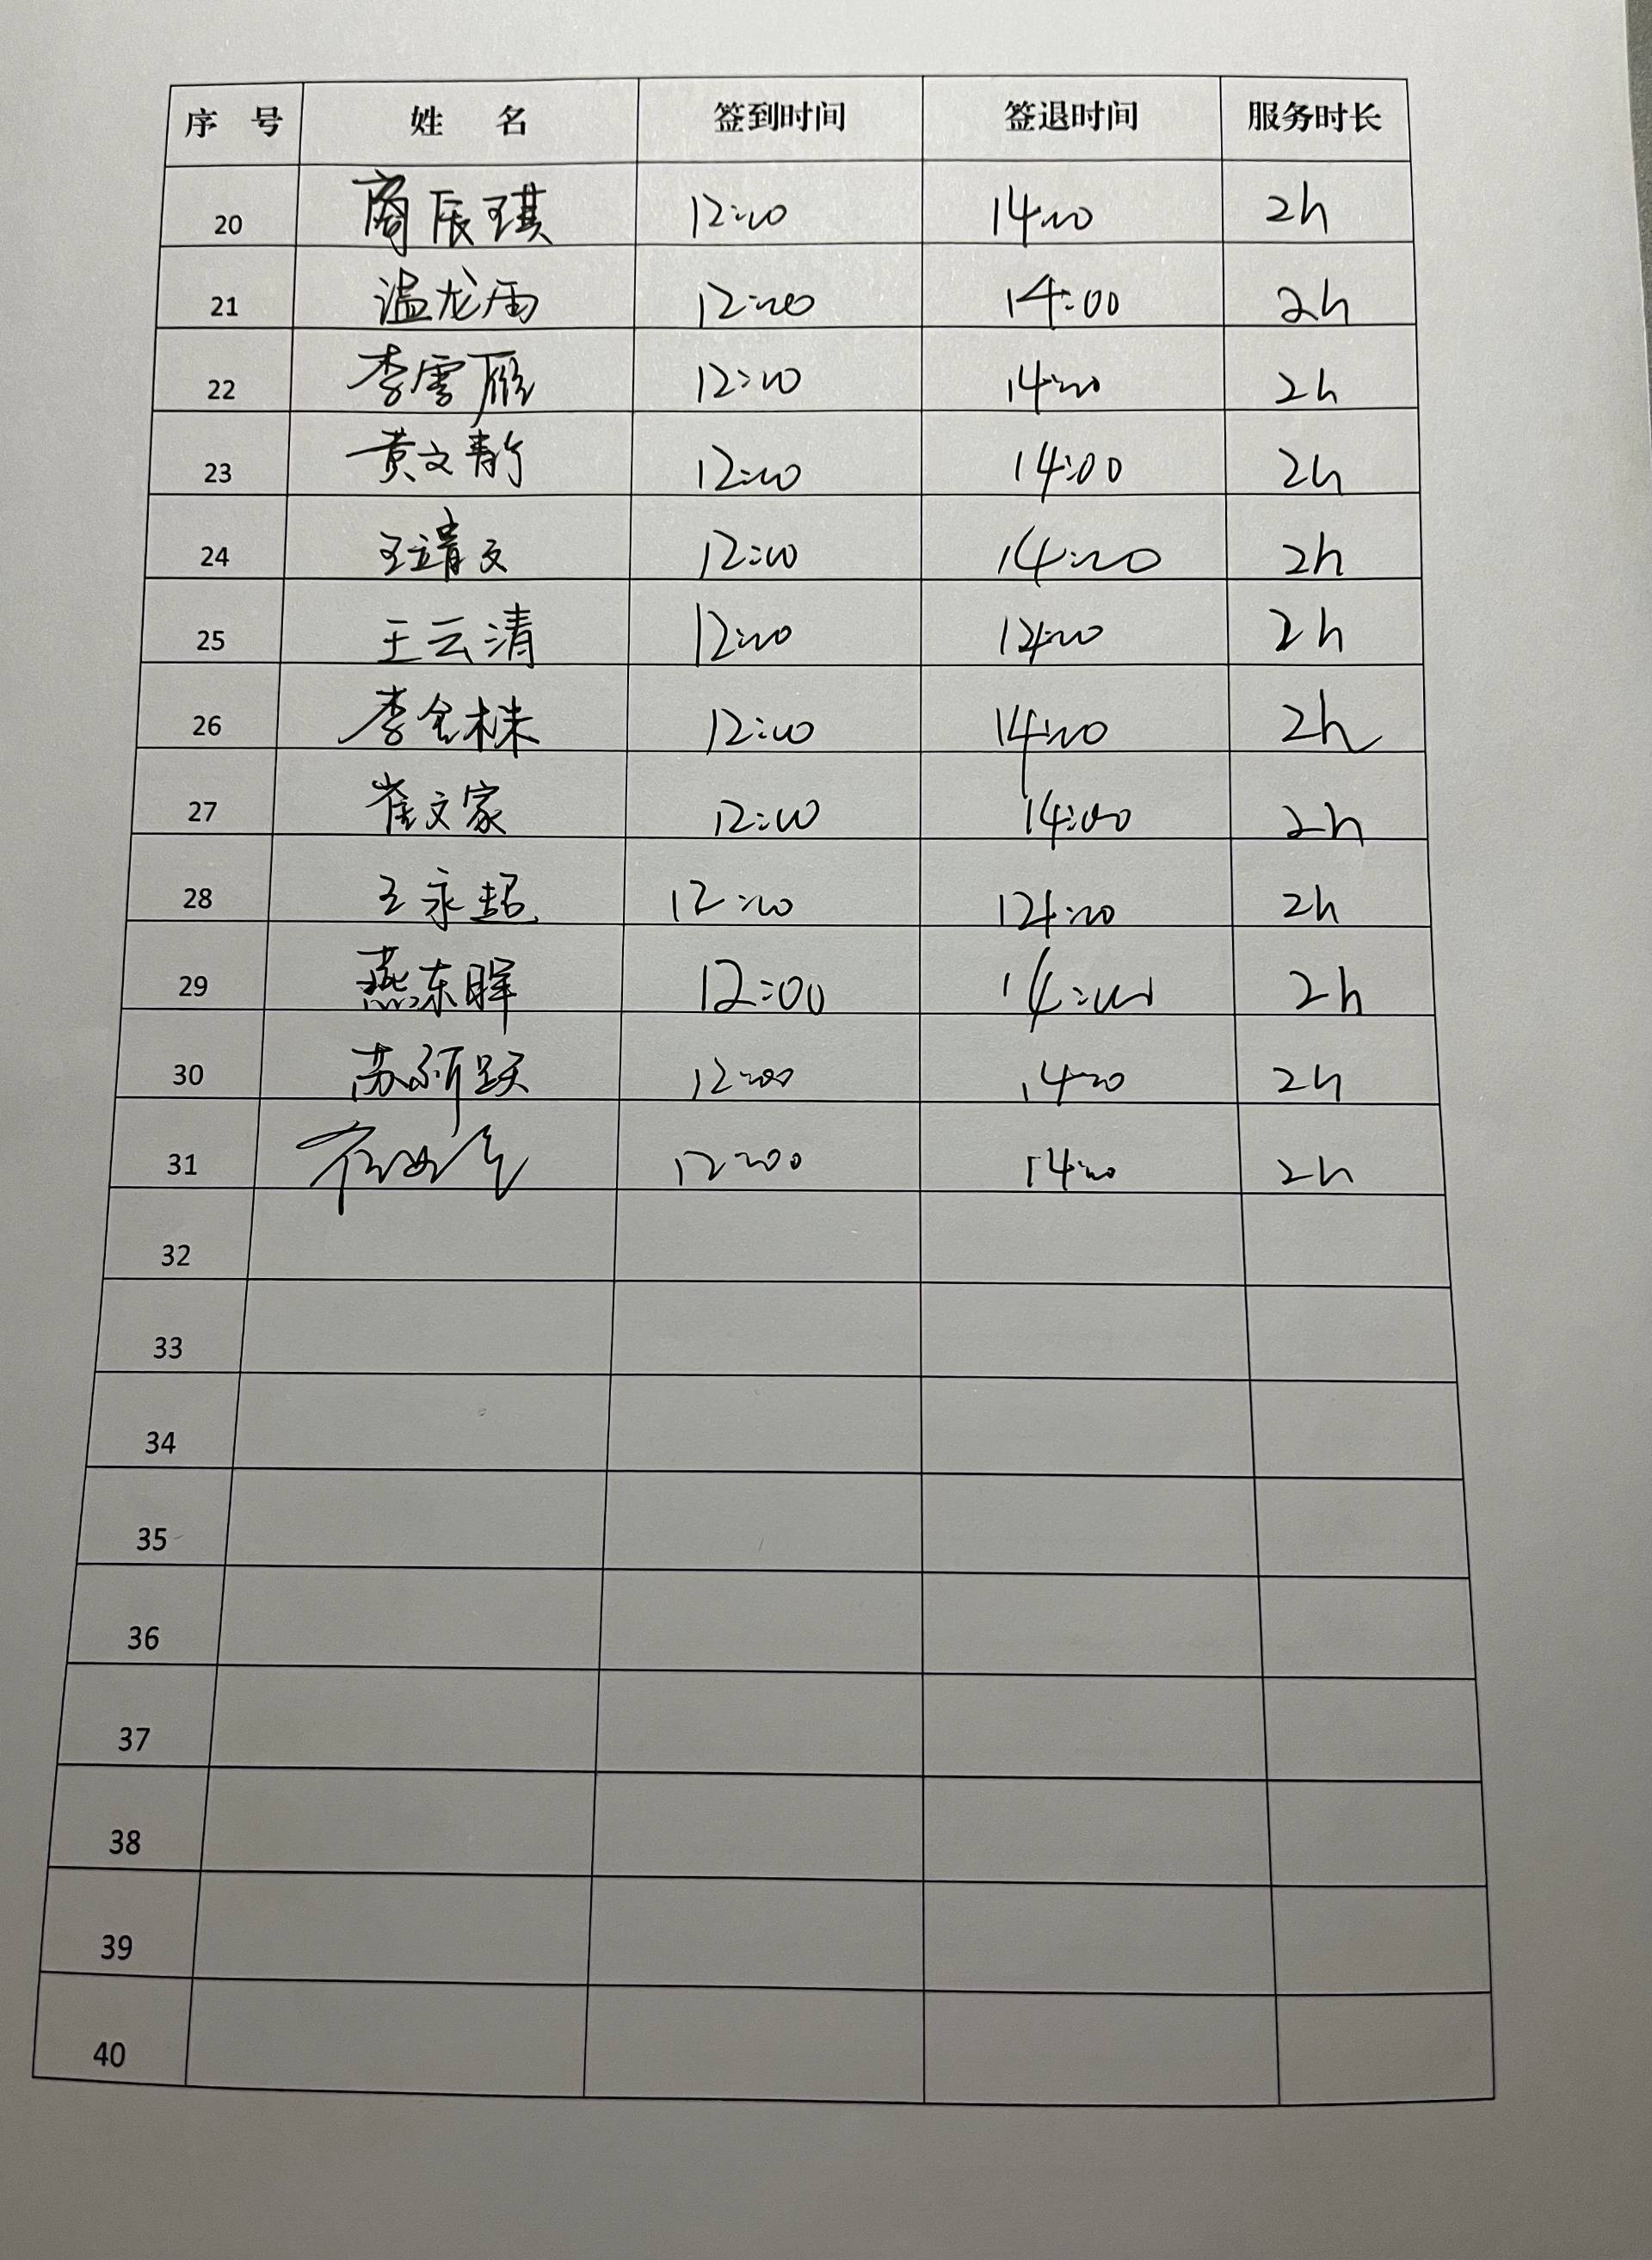 序 号 姓 名 签到时间 签退时间 服务时长
20 商辰琪 12:00 14:00 2h
21 温龙雨 12:00 14:00 2h
22 李雪雁 12:00 14:00 2h
23 黄文静 12:00 14:00 2h
24 王靖文 12:00 14:00 2h
25 王云清 12:00 14:00 2h
26 李金株 12:00 14:00 2h
27 崔文家 12:00 14:00 2h
28 王永超 12:00 14:00 2h
29 燕东晖 12:00 14:00 2h
30 苏新跃 12:00 14:00 2h
31 12:00 14:00 2h
32
33
34
35
36
37
38
39
40